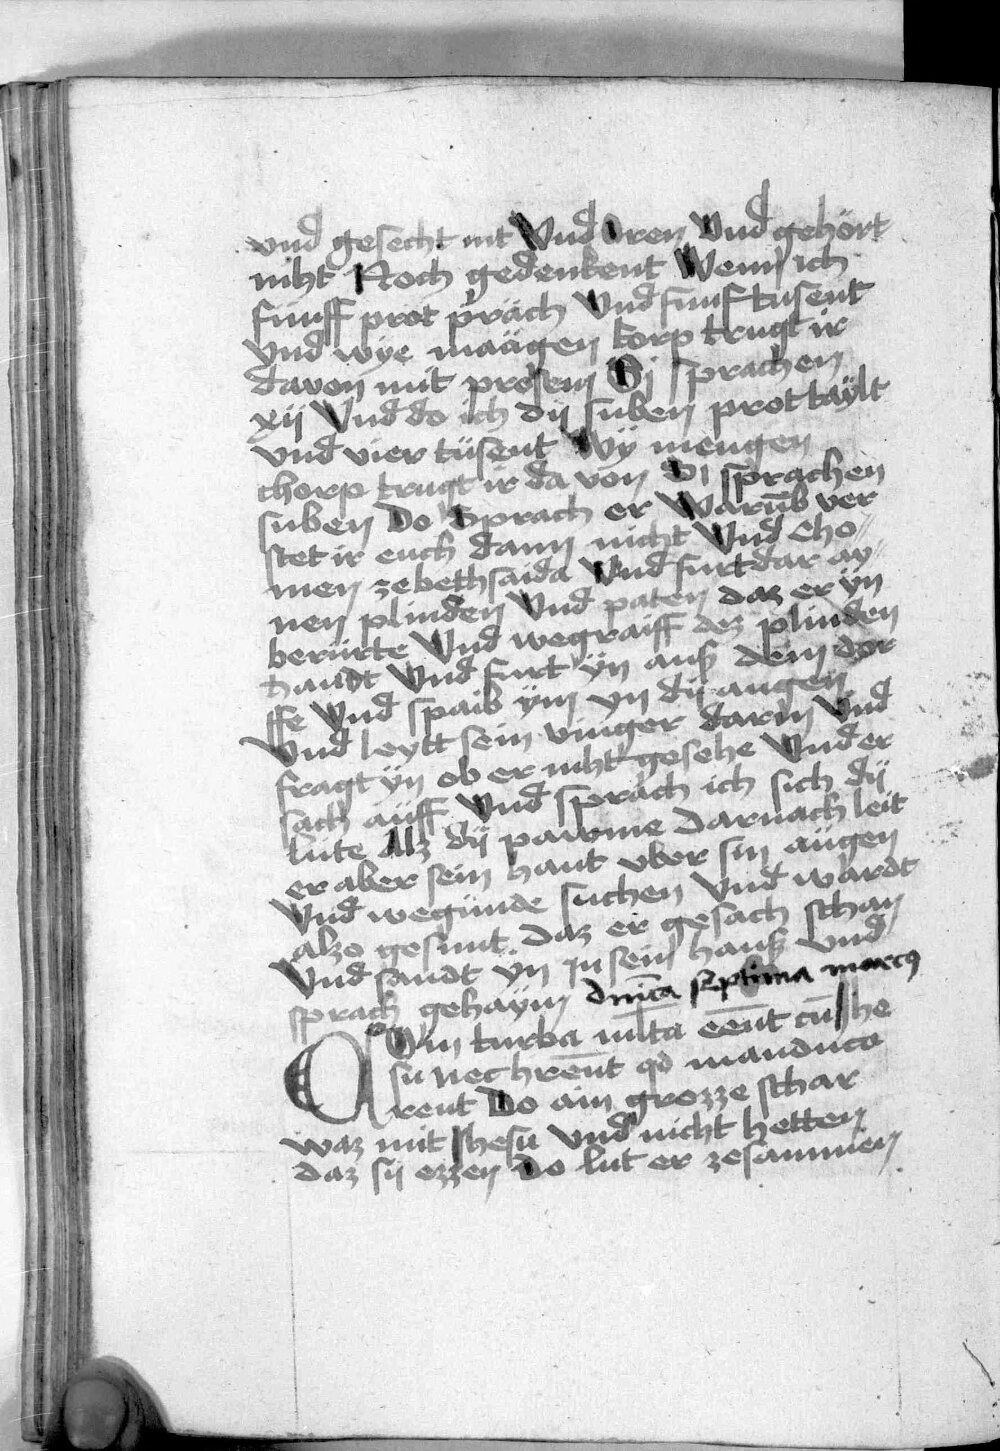 vnd gesecht nit Vnd Oren Vnd gehört
niht Noch gedenkent Wenn ich
funff prot präch Vnd funf tusent
Vnd wÿe maägen korp trugt ir
davon mit prosem Di sprachen
xij Vnd do ich dij suben prot taÿlt
vnd vier tüsent Wÿ mengen
chorp trugt ir da von Di sprachen
suben Do Sprach er Warūb ver
stet ir euch dann nicht Vnd Cho⸗
men ze bethsaida Vnd furt dar ay⸗
nen plinden Vnd paten daz er ÿn
berürte Vnd wegraiff dez plinden
handt Vnd furt ÿn auß dem dor
ffe Vnd spaib ÿm yn dij augen
Vnd leytt sein vinger darin Vnd
fragt ÿn ob er niht gesehe Vnd er
sach aüff Vnd sprach ich sich dÿ
lüte Alz dij pawme Darnach leit
er aber sein hant vber sin aügen
Vnd wegünde suchen Vnd wardt
alzo gesunt Daz er gesach schan
Vnd sandt ÿn in sein hauß Vnd
sprach gehaÿm dnīca septima marcꝯ
Cvm turba mlta eēnt cū Ihe
su nec hrēnt qd manduca
rent Do ain grozze schar
waz mit Ihesu Vnd nicht hetten
daz sij ezzen Do lut er zesammen